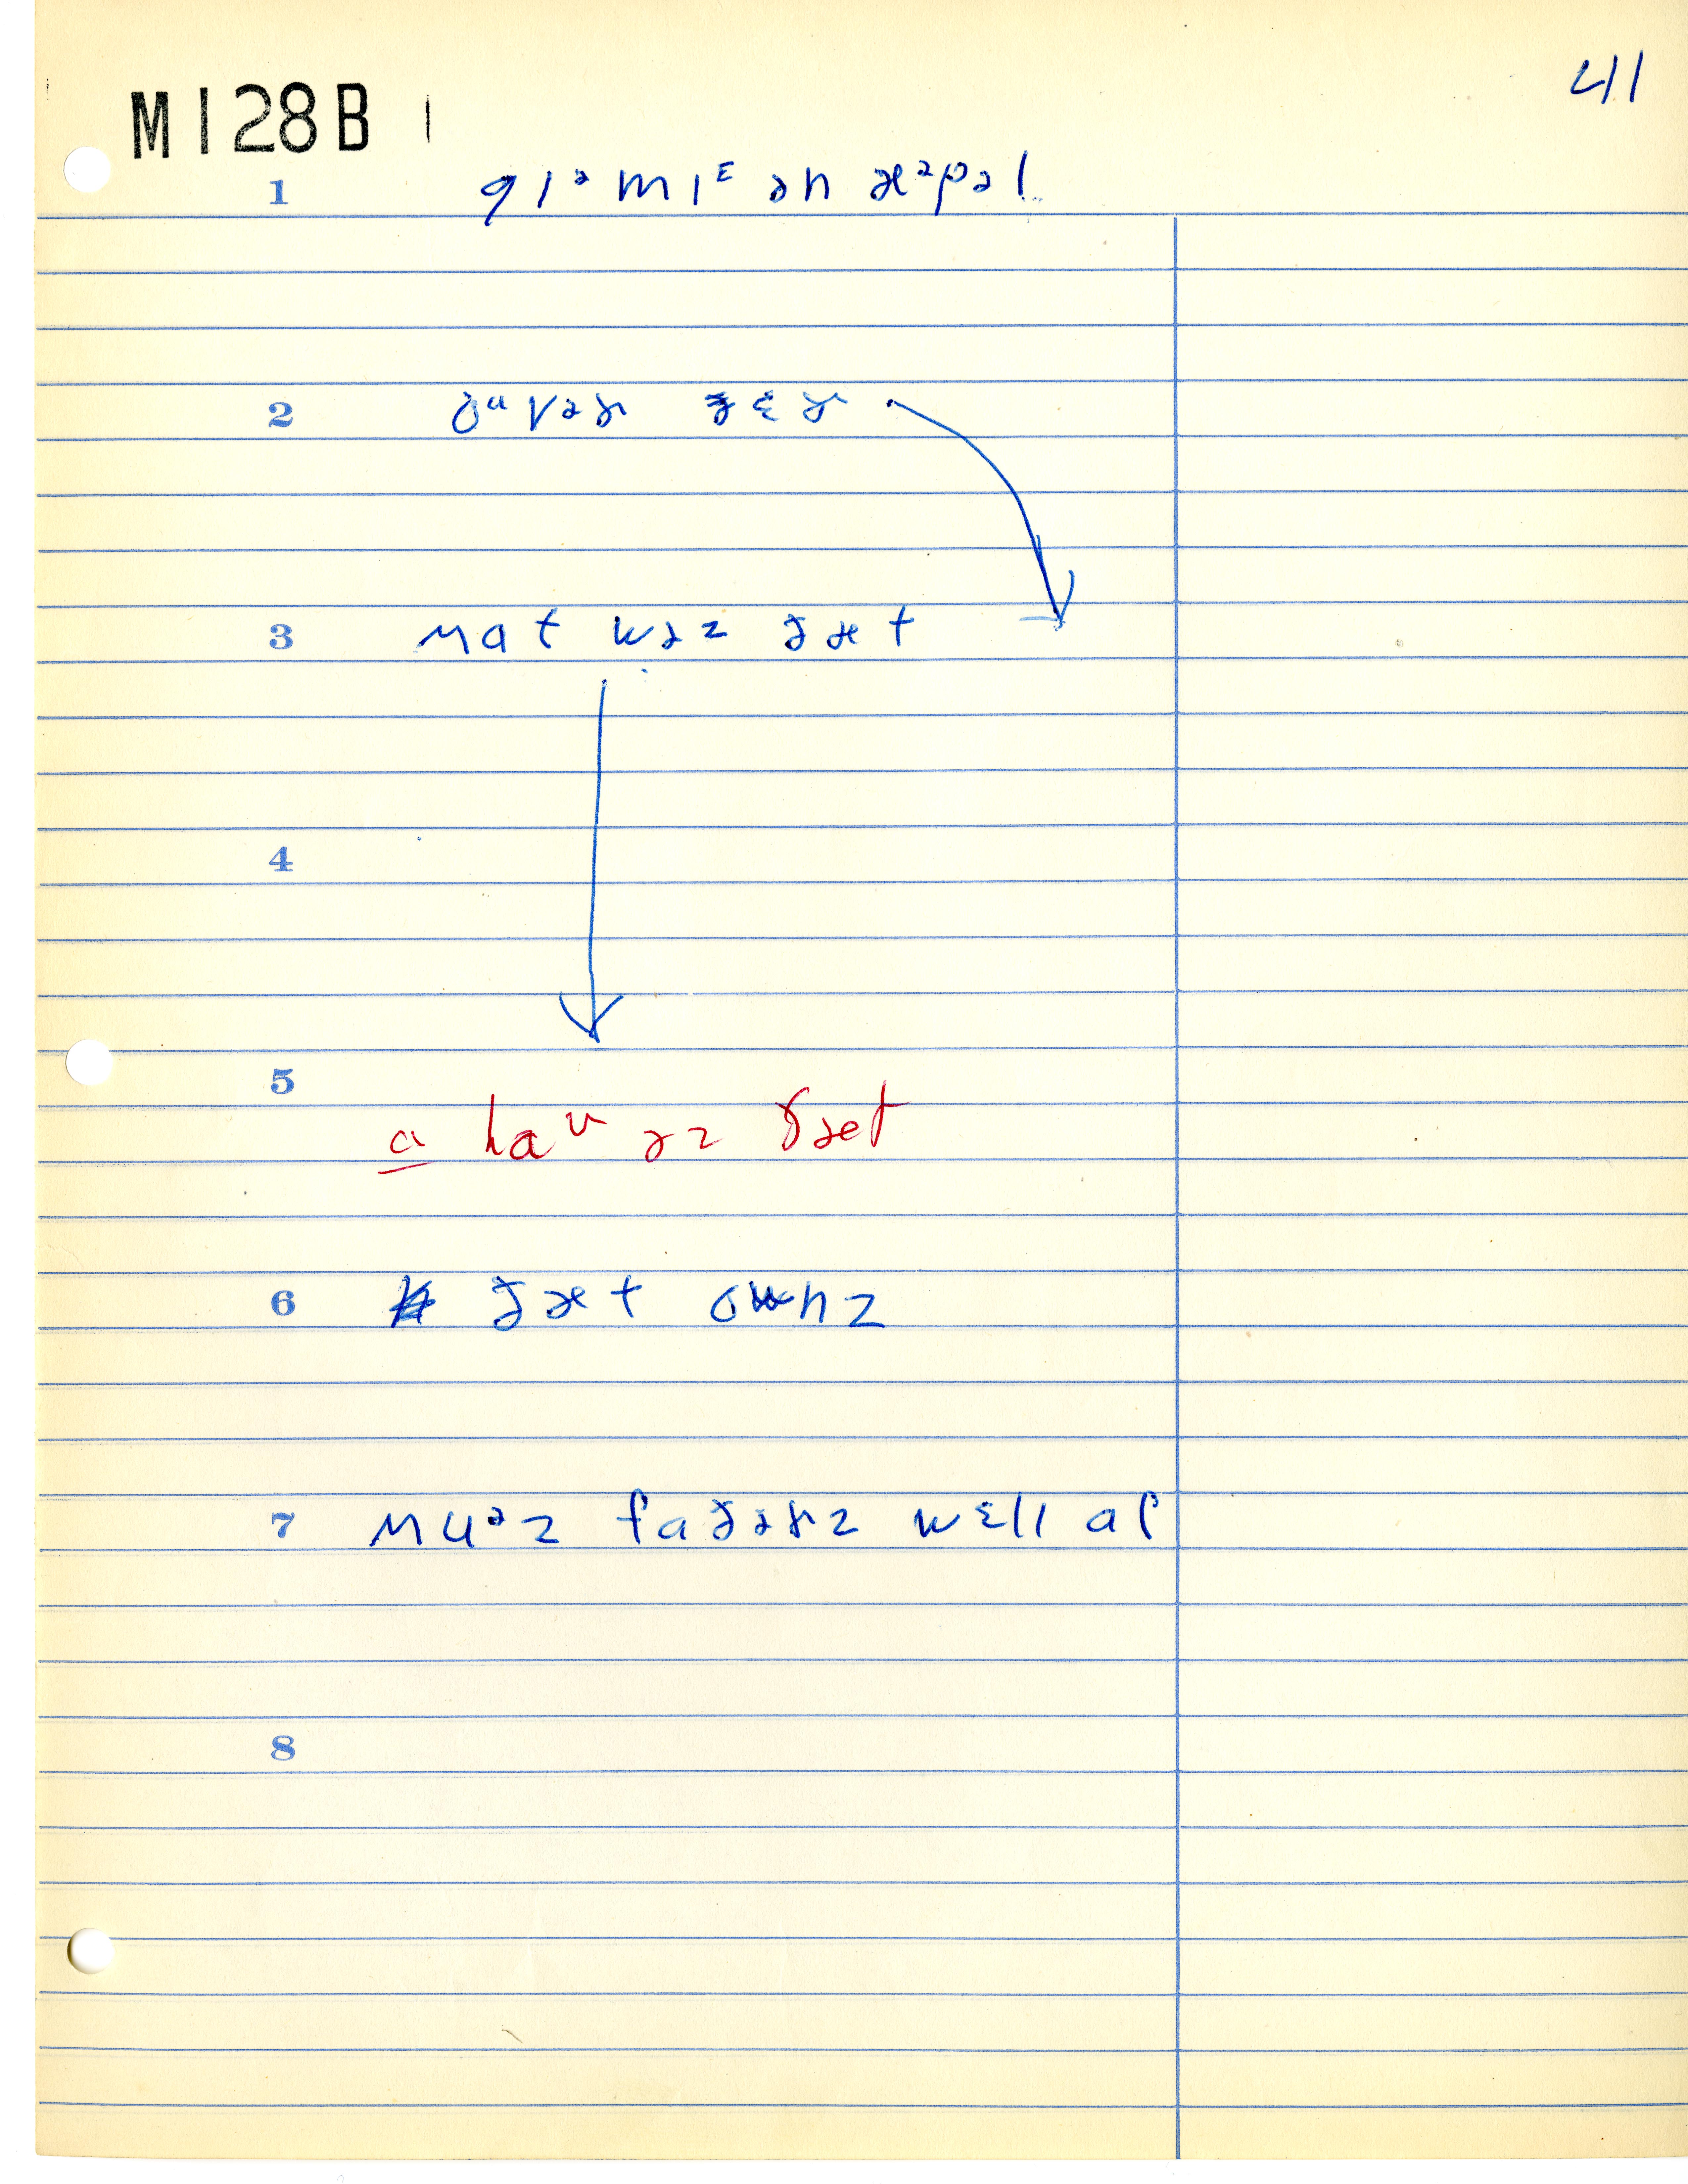 M128B 1
411
1 gɪᵊmɪᴱ ən æᵊpəl
2 oᵘvəɤ ðɛɤ
3 ʍat wəz ðæt
4
5
a haᵘ əz ðæt
6 ðæt ownz
7 ʍuᵊz faðəɤz wɛll af
8